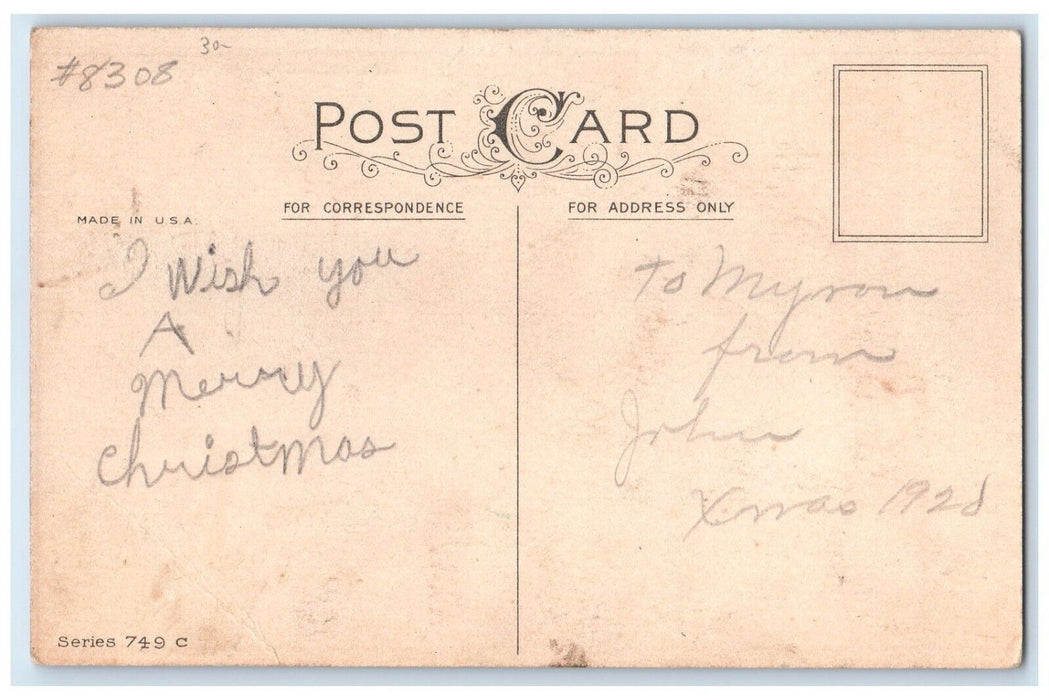 30-
#8308
POST CARD
FOR CORRESPONDENCE
FOR ADDRESS ONLY
MADE IN U.S.A.
I Wish you
A
Merry
Christmas
To Myron
from
John
Xmas 1928
Series 749 C